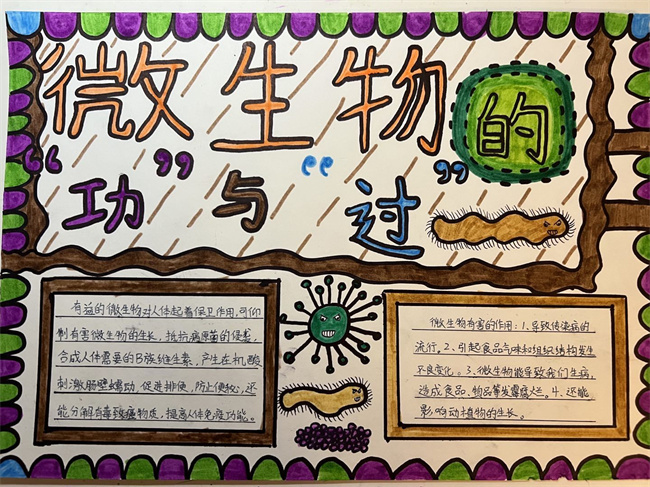 微生物的
“功”与“过”
有益的微生物对人体起着保卫作用,可仰
制有害微生物的生长,抵抗病原菌的侵袭,
合成人体需要的B族维生素,产生在机酸
刺激肠壁蠕动,促进排便,防止便秘;还
能分解有毒致癌物质,提高人体免疫功能。
微生物有害的作用:1、导致传染病的
流行。2、引起食品气味和组织结构发生
不良变化。3、微生物能导致我们生病,
造成食品、物品等发霉腐烂。4、还能
影响动植物的生长。